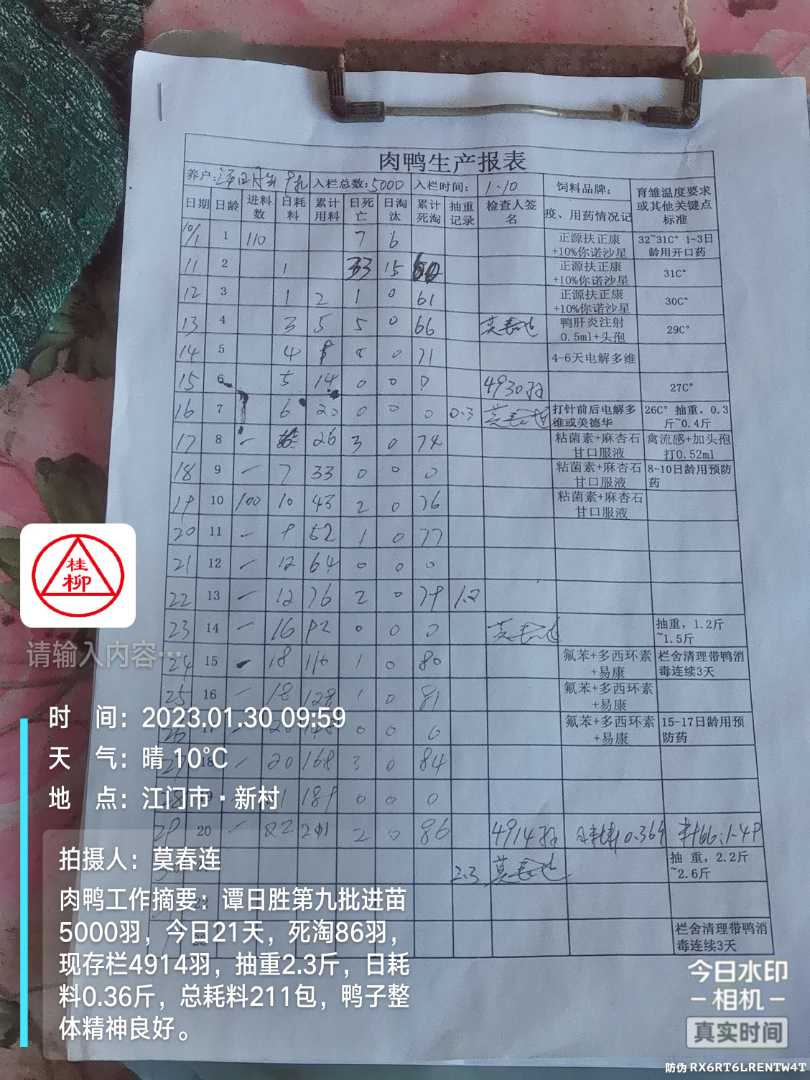 肉鸭生产报表
养户: 入栏总数:5000 入栏时间: 1-10 饲料品牌: 育雏温度要求或其他关键点标准
日期 日龄 进料数 日耗料 累计用料 日死亡 日淘汰 累计死淘 抽重记录 检查人签名 疫、用药情况记
10/1 1 110 7 6 正源扶正康+10%你诺沙星 32~31C° 1-3日龄用开口药
11 2 1 33 15 正源扶正康+10%你诺沙星 31C°
12 3 1 2 1 0 61 正源扶正康+10%你诺沙星 30C°
13 4 3 5 5 0 66 鸭肝炎注射0.5ml+头孢 29C°
14 5 4 0 71 4-6天电解多维
15 6 5 14 0 0 0 4930羽 27C°
16 7 6 20 0 0 0 0.3 打针前后电解多维或美德华 26C° 抽重,0.3斤~0.4斤
17 8 26 3 0 74 粘菌素+麻杏石甘口服液 禽流感+加头孢打0.52ml
18 9 7 33 0 0 0 粘菌素+麻杏石甘口服液 8-10日龄用预防药
19 10 100 10 43 2 0 76 粘菌素+麻杏石甘口服液
20 11 9 52 1 0 77
21 12 12 64 0 0 0
22 13 12 76 2 0 79 1.2
23 14 16 92 0 0 0 抽重,1.2斤~1.5斤
24 15 18 110 1 0 80 氟苯+多西环素+易康 栏舍清理带鸭消毒连续3天
25 16 18 128 1 0 81 氟苯+多西环素+易康
0 0 氟苯+多西环素+易康 15-17日龄用预防药
20 168 3 0 84
189 0 0 0
29 20 22 211 2 0 86 4914羽
2.3 抽重,2.2斤~2.6斤
栏舍清理带鸭消毒连续3天
桂
柳
请输入内容…
时 间:2023.01.30 09:59
天 气:晴 10℃
地 点:江门市·新村
拍摄人:莫春连
肉鸭工作摘要:谭日胜第九批进苗
5000羽,今日21天,死淘86羽,
现存栏4914羽,抽重2.3斤,日耗
料0.36斤,总耗料211包,鸭子整
体精神良好。
今日水印
-相机-
真实时间
防伪 RX6RT6LRENTW4T